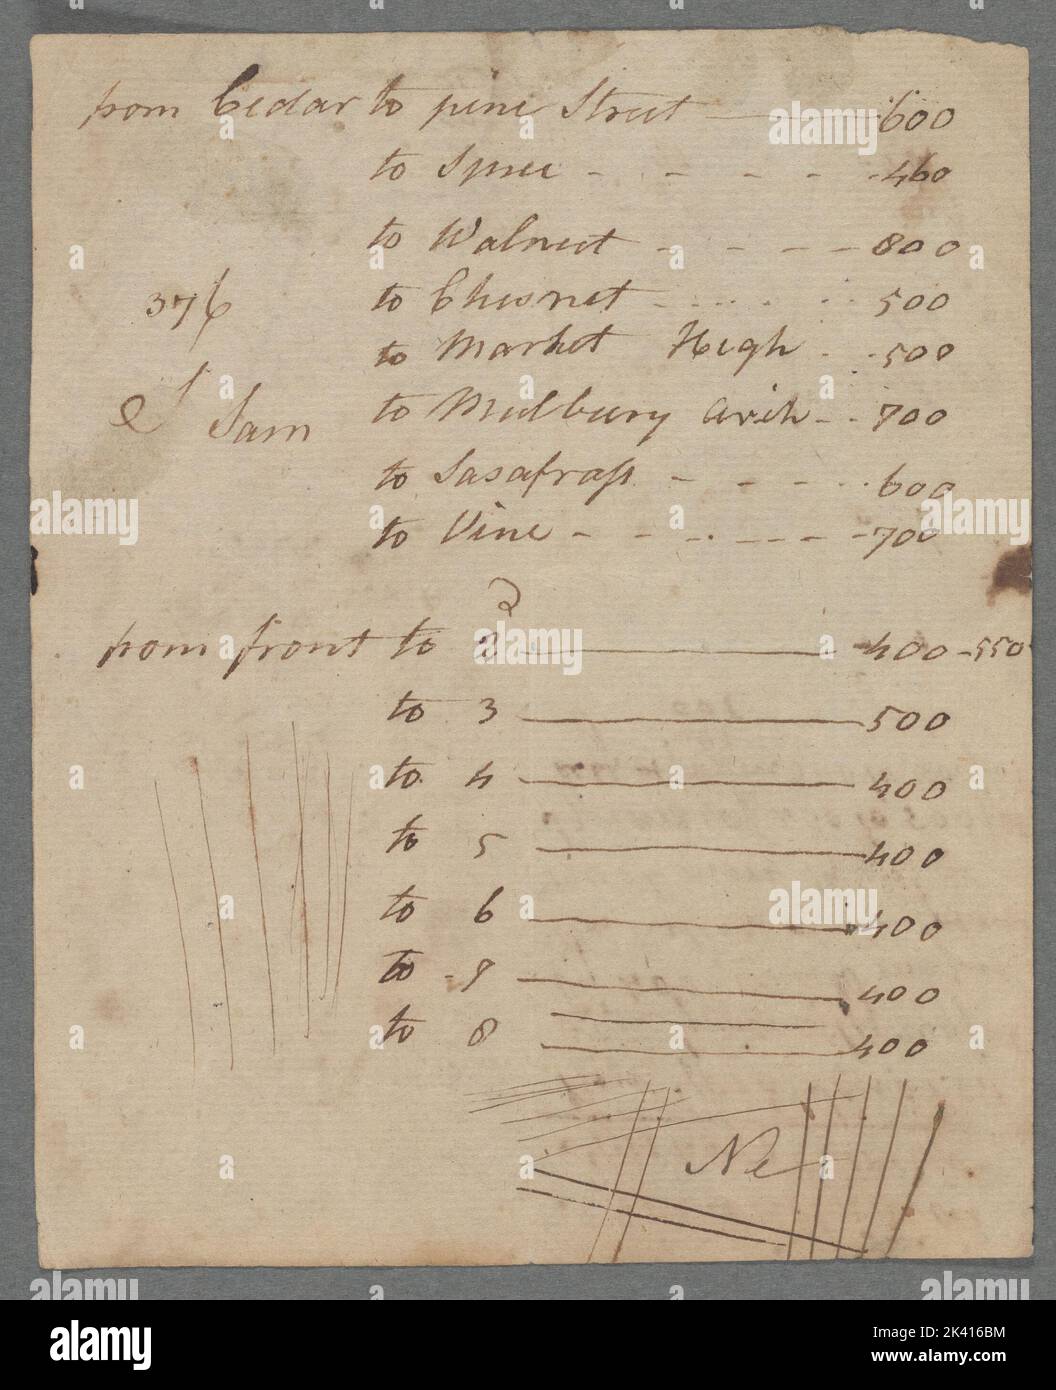 from Cedar to pine Street 600
to Spruce - - - - - 460
to Walnut - - - - 800
376
to Chesnet - . . . . . 500
to Market High . . 500
& Sam
to Mulbury Arch - . 700
to Sasafrass - - - - . 600
to Vine - - - . - - - 700
2
from front to 2 400-550
to 3 500
to 4 400
to 5 400
to 6 400
to - 7 400
to 8 400
Ne
alamy
Image ID: 2K416BM
www.alamy.com